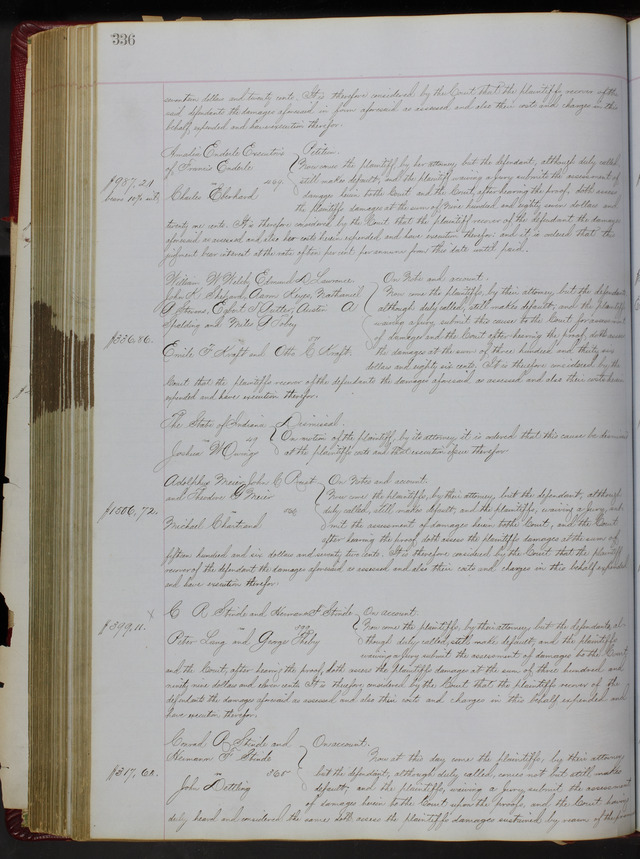 336
seventeen dollars and twenty cents. It is therefore considered by the Court that the plaintiffs recover of the
said defendants the damages aforesaid in form aforesaid as assessed and also their costs and charges in this
behalf expended and have execution therefor.
Amalie Enderle Executrix Petition.
of Francis Enderle Now comes the plaintiff by her attorney but the defendant, although duly called
$987,21 still makes default, and the plaintiff waiving a jury submits the assessment of
bears 10 pr cent Charles Eberhard damages herein to the Court and the Court, after having the proof, doth assess
the plaintiffs damages at the sum of Nine hundred and eighty seven dollars and
twenty one cents. It is therefore considered by the Court that the plaintiff recover of the defendant the damages
aforesaid as assessed and also her costs herein expended and have execution therefor and it is ordered that the
judgment bear interest at the rate of ten per cent per annum from this date until paid.
William W Welsh, Edmund D Lawrence On Note and account.
John Shepard, Nathaniel Now come the plaintiffs, by their attorney, but the defendants
Stevens, Egbert S Butler, Austin A although duly called, still makes default, and the Plaintiffs
Spalding and Miles Tobey waiving a jury submit this cause to the Court for assessment
$336.86. of damages and the Court after having the proof doth assess
vs
Emile F Kraft and Otto C Kraft. the damages at the sum of three hundred and thirty six
dollars and eighty six cents. It is therefore considered by the
Court that the plaintiffs recover of the defendants the damages aforesaid as assessed and also their costs herein
expended and have execution therefor.
The State of Indiana Dismissal.
49 On motion of the plaintiff, by its attorney it is ordered that this cause be dismissed
Joshua W Owings at the plaintiffs costs and that execution issue therefor
Adolphus Meier, John C On Notes and account.
and Theodore G Meier Now come the plaintiffs, by their attorney, but the defendant, although
$1506,72. duly called, still makes default, and the plaintiffs, waiving a jury, sub-
Michael Chartrand mit the assessment of damages herein to the Court, and the Court
after having the proof doth assess the plaintiffs damages at the sum of
fifteen hundred and six dollars and seventy two cents. It is therefore considered by the Court that the plaintiffs
recover of the defendant the damages aforesaid as assessed and also their costs and charges in this behalf expended
and have execution therefor.
C R Stinde and Hermann F Stinde On account
$399,11. Now come the plaintiffs, by their attorney, but the defendants, al-
Peter Lang and George though duly called, still make default, and the plaintiffs
waiving a jury submit the assessment of damages to the Court,
and the Court, after having the proof, doth assess the Plaintiffs damages at the sum of three hundred and
ninety nine dollars and eleven cents. It is therefore considered by the Court that the plaintiffs recover of the
defendants the damages aforesaid as assessed and also their costs and charges in this behalf expended and
have execution therefor.
Conrad R Stinde and On account.
Hermann F Stinde Now at this day come the plaintiffs, by their attorney
$317,60. 365 but the defendant, although duly called, comes not but still makes
John Dettling default, and the plaintiffs, waiving a jury, submit the assessment
of damages herein to the Court upon the proofs, and the Court having
duly heard and considered the same doth assess the plaintiffs damages sustained by reason of the